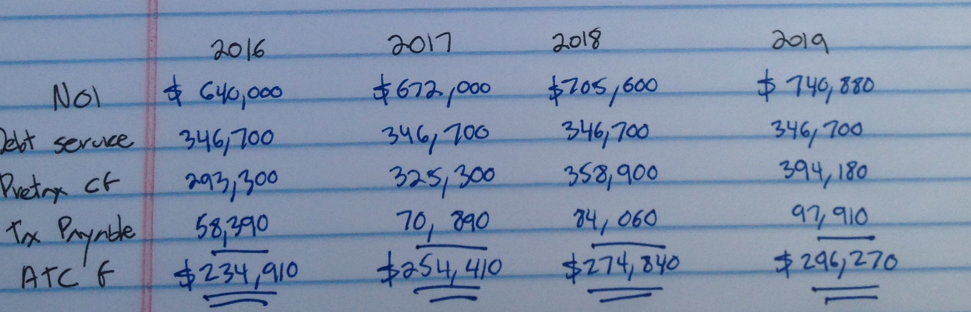 2016 2017 2018 2019
NOI $ 640,000 $672,000 $705,600 $ 740,880
Debt service 346,700 346,700 346,700 346,700
Pretax CF 293,300 325,300 358,900 394,180
Tax Payable 58,390 70,890 84,060 97,910
ATCF $234,910 $254,410 $274,840 $296,270